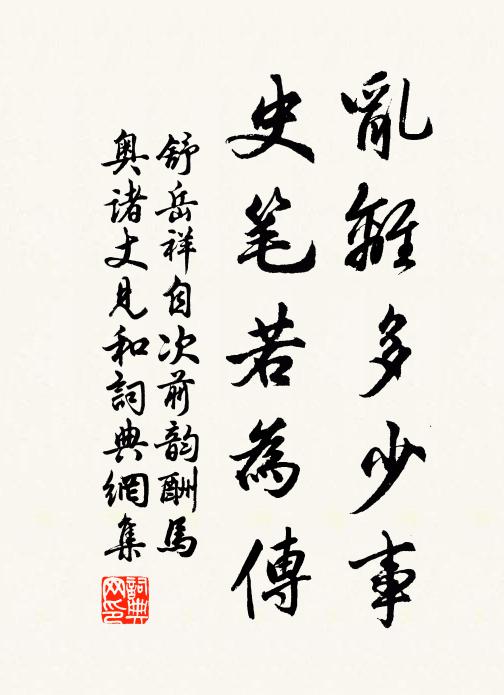 亂離多少事
史笔若為傳
舒岳祥自次前韵酬馬
奥诸丈見和詞典網集
詞典網印